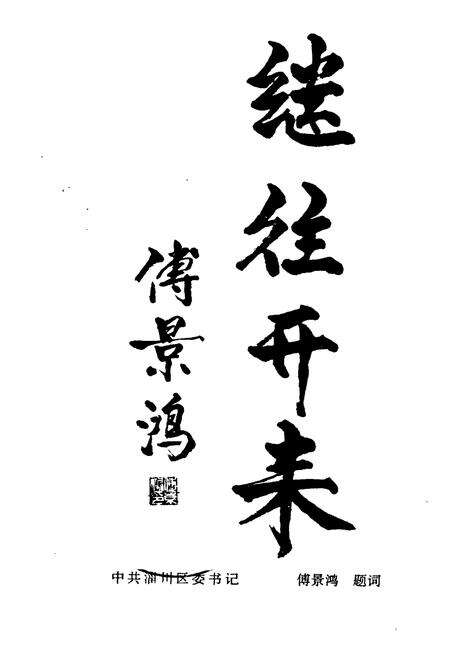 继往开来
傅景鸿
中共淄川区委书记 傅景鸿 题词